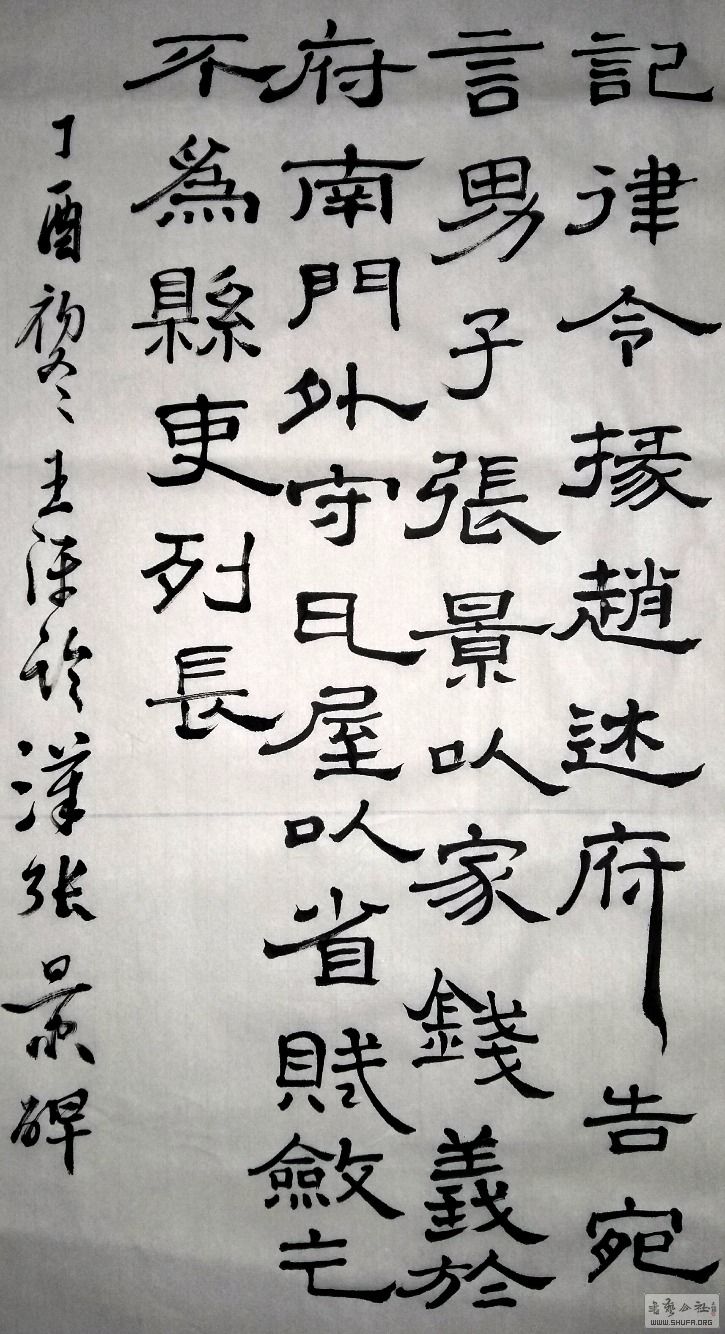 記律令掾趙述府告宛
言男子張景以家錢義於
府南門外守瓦屋以省賦斂亡
不爲縣吏列長
丁酉初冬王泽漢张景碑
書藝公社
WWW.SHUFA.ORG